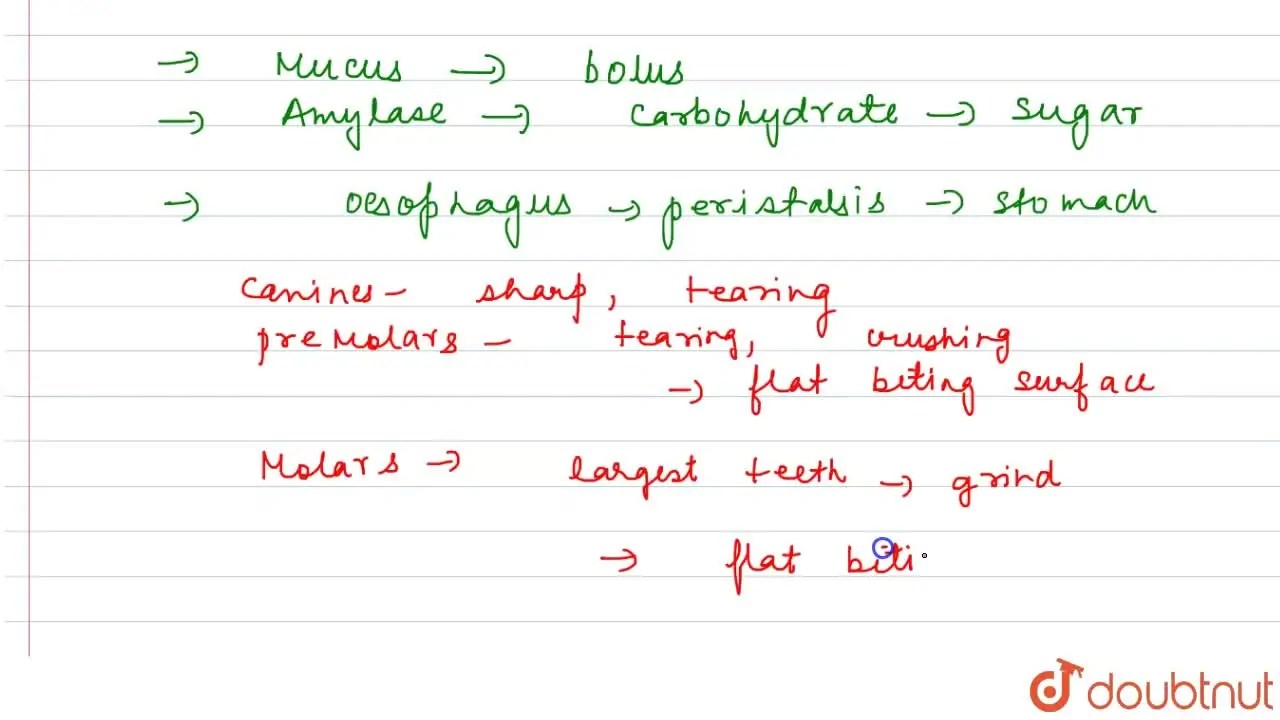 → Mucus → bolus
→ Amylase → Carbohydrate → Sugar
→ oesophagus → peristalsis → stomach
Canines - sharp, tearing
preMolars - tearing, crushing
→ flat biting surface
Molars → largest teeth → grind
→ flat biti
doubtnut